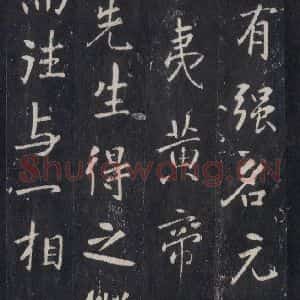 有强名元
夷黄帝
先生得之
而注与一相
Shufawang.CN